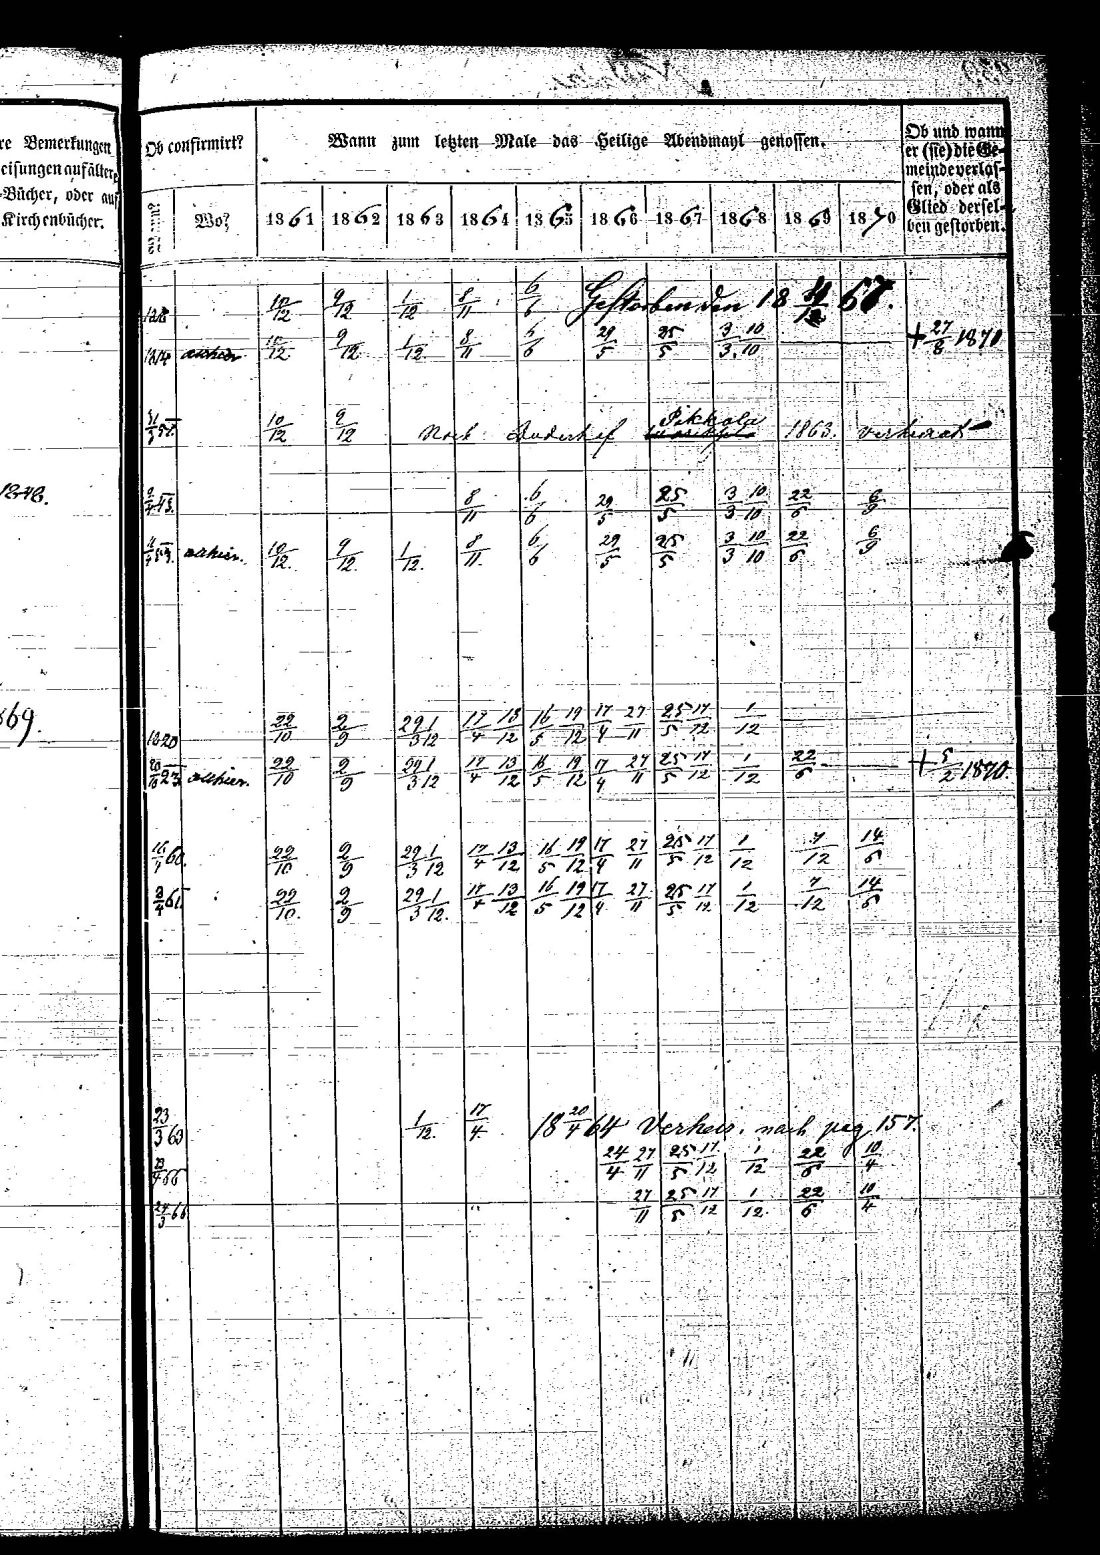 re Bemerkungen
eisungen auf ältere
-Bücher, oder auf
Kirchenbücher.
Ob confirmirt?
Wann zum letzten Male das Heilige Abendmahl genossen.
Ob und wann
er (sie) die Ge-
meinde verlas-
sen, oder als
Glied dersel-
ben gestorben.
Wann? Wo? 1861 1862 1863 1864 1865 1866 1867 1868 1869 1870
10/12 9/12 1/12 8/11 6/6 Gestorben den 18 67.
allhier 10/12 9/12 1/12 8/11 6/6 29/5 25/5 3/3 10/10 + 27/8 1870
10/12 9/12 Nach Duderhof Pikkola 1863. verheirat
1848.
8/11 6/6 29/5 25/5 3/3 10/10 22/6 6/9
allhier. 10/12. 9/12. 1/12. 8/11. 6/6 29/5 25/5 3/3 10/10 22/6 6/9
869.
22/10 2/9 29/3 1/12 17/4 13/12 16/5 19/12 17/4 27/11 25/5 17/12 1/12
allhier. 22/10 2/9 29/3 1/12 17/4 13/12 16/5 19/12 17/4 27/11 25/5 17/12 1/12 22/6 + 5/2 1870.
60. 22/10 2/9 29/3 1/12 17/4 13/12 16/5 19/12 17/4 27/11 25/5 17/12 1/12 7/12 14/6
2/4 61 22/10. 2/9 29/3 1/12. 17/4 13/12 16/5 19/12 17/4 27/11 25/5 17/12 1/12 7/12 14/6
23/3 63 1/12. 17/4. 18 20/4 64 Verheir. nach pag 157.
23/4 66 24/4 27/11 25/5 17/12 1/12 22/6 10/4
24/3 66 27/11 25/5 17/12 1/12. 22/6 10/4